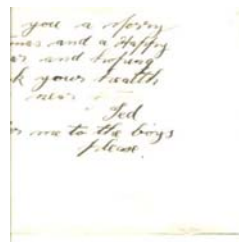 you a Merry
mas and a Happy
ar and hoping
k your health
near
Ted
me to the boys
please.